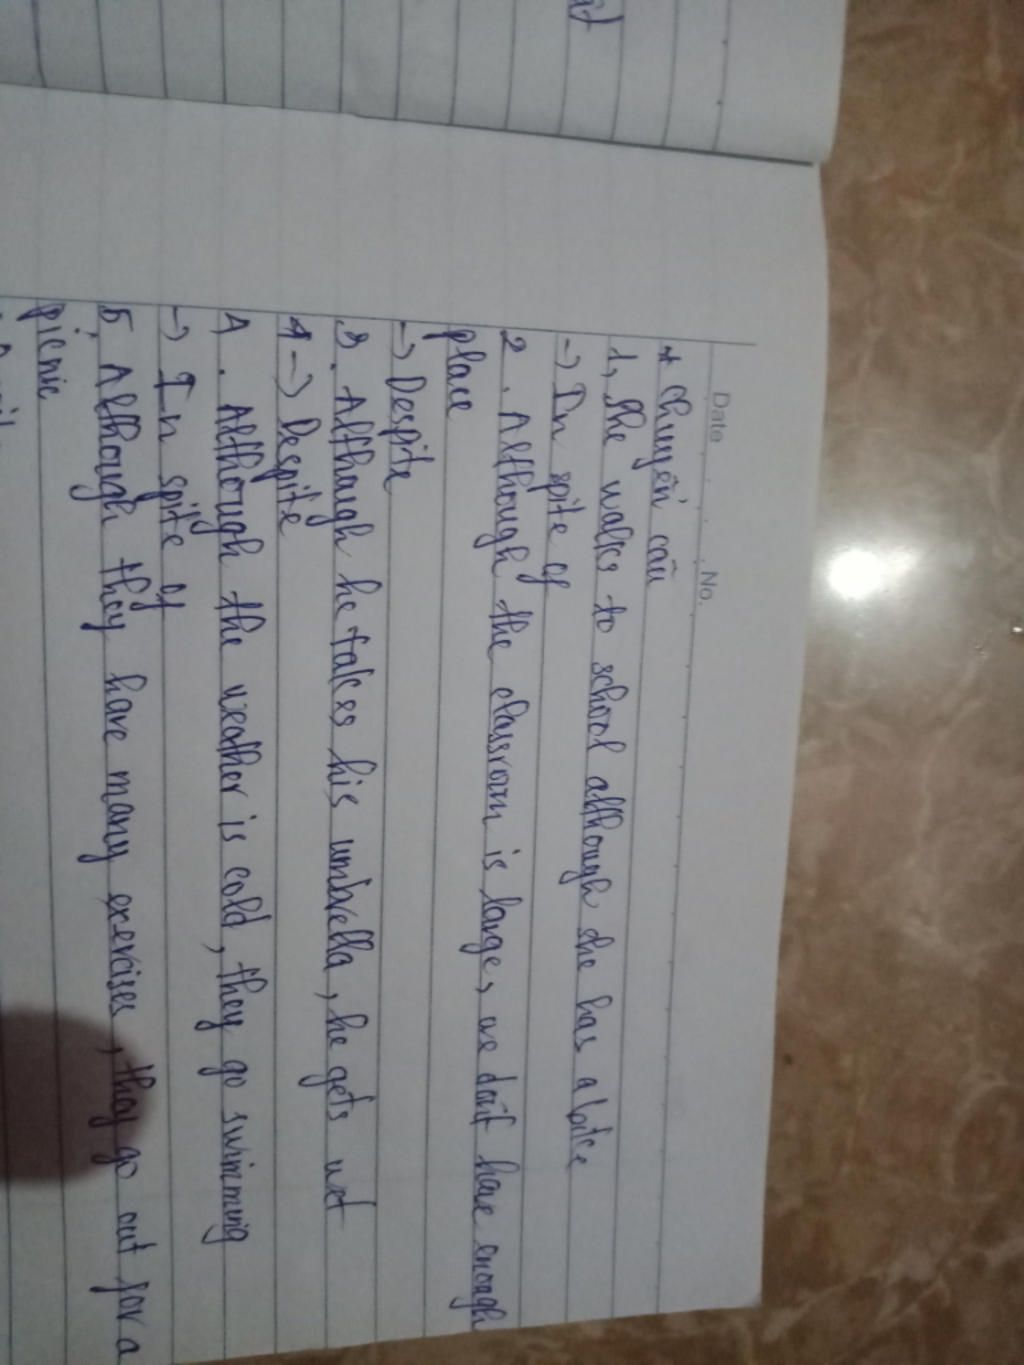 Date No.
* Chuyển câu
1, She walks to school although she has a bike
-> In spite of
2. Although the classroom is large, we don't have enough
place
-> Despite
3. Although he takes his umbrella, he gets wet
4 -> Despite
4. Although the weather is cold, they go swimming
-> In spite of
5. Although they have many exercises, they go out for a
picnic